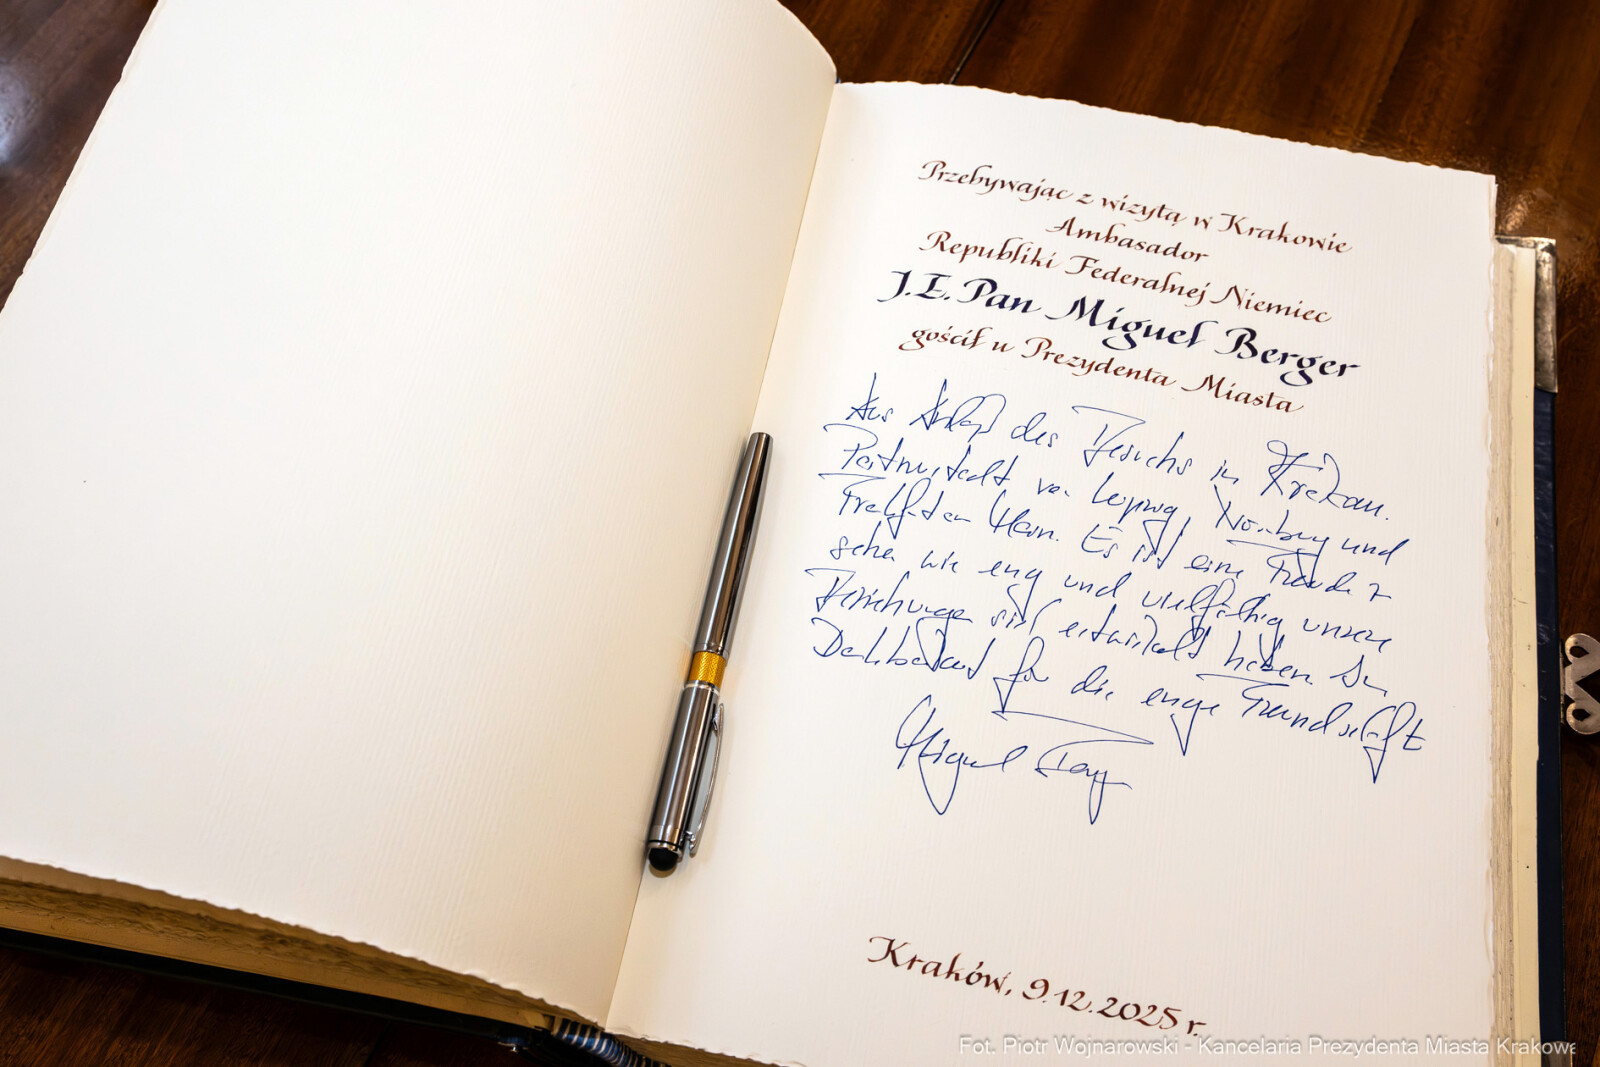 Przebywając z wizytą w Krakowie
Ambasador
Republiki Federalnej Niemiec
J.E. Pan Miguel Berger
gościł u Prezydenta Miasta
Aus Anlaß des Besuchs in Krakau.
Partnerstadt von Leipzig, Nürnberg und
Frankfurt am Main. Es ist eine Freude zu
sehen wie eng und vielfältig unsere
Beziehungen sich entwickelt haben. In
Dankbarkeit für die enge Freundschaft
Miguel Berger
Kraków, 9.12.2025 r.
Fot. Piotr Wojnarowski - Kancelaria Prezydenta Miasta Krakowa